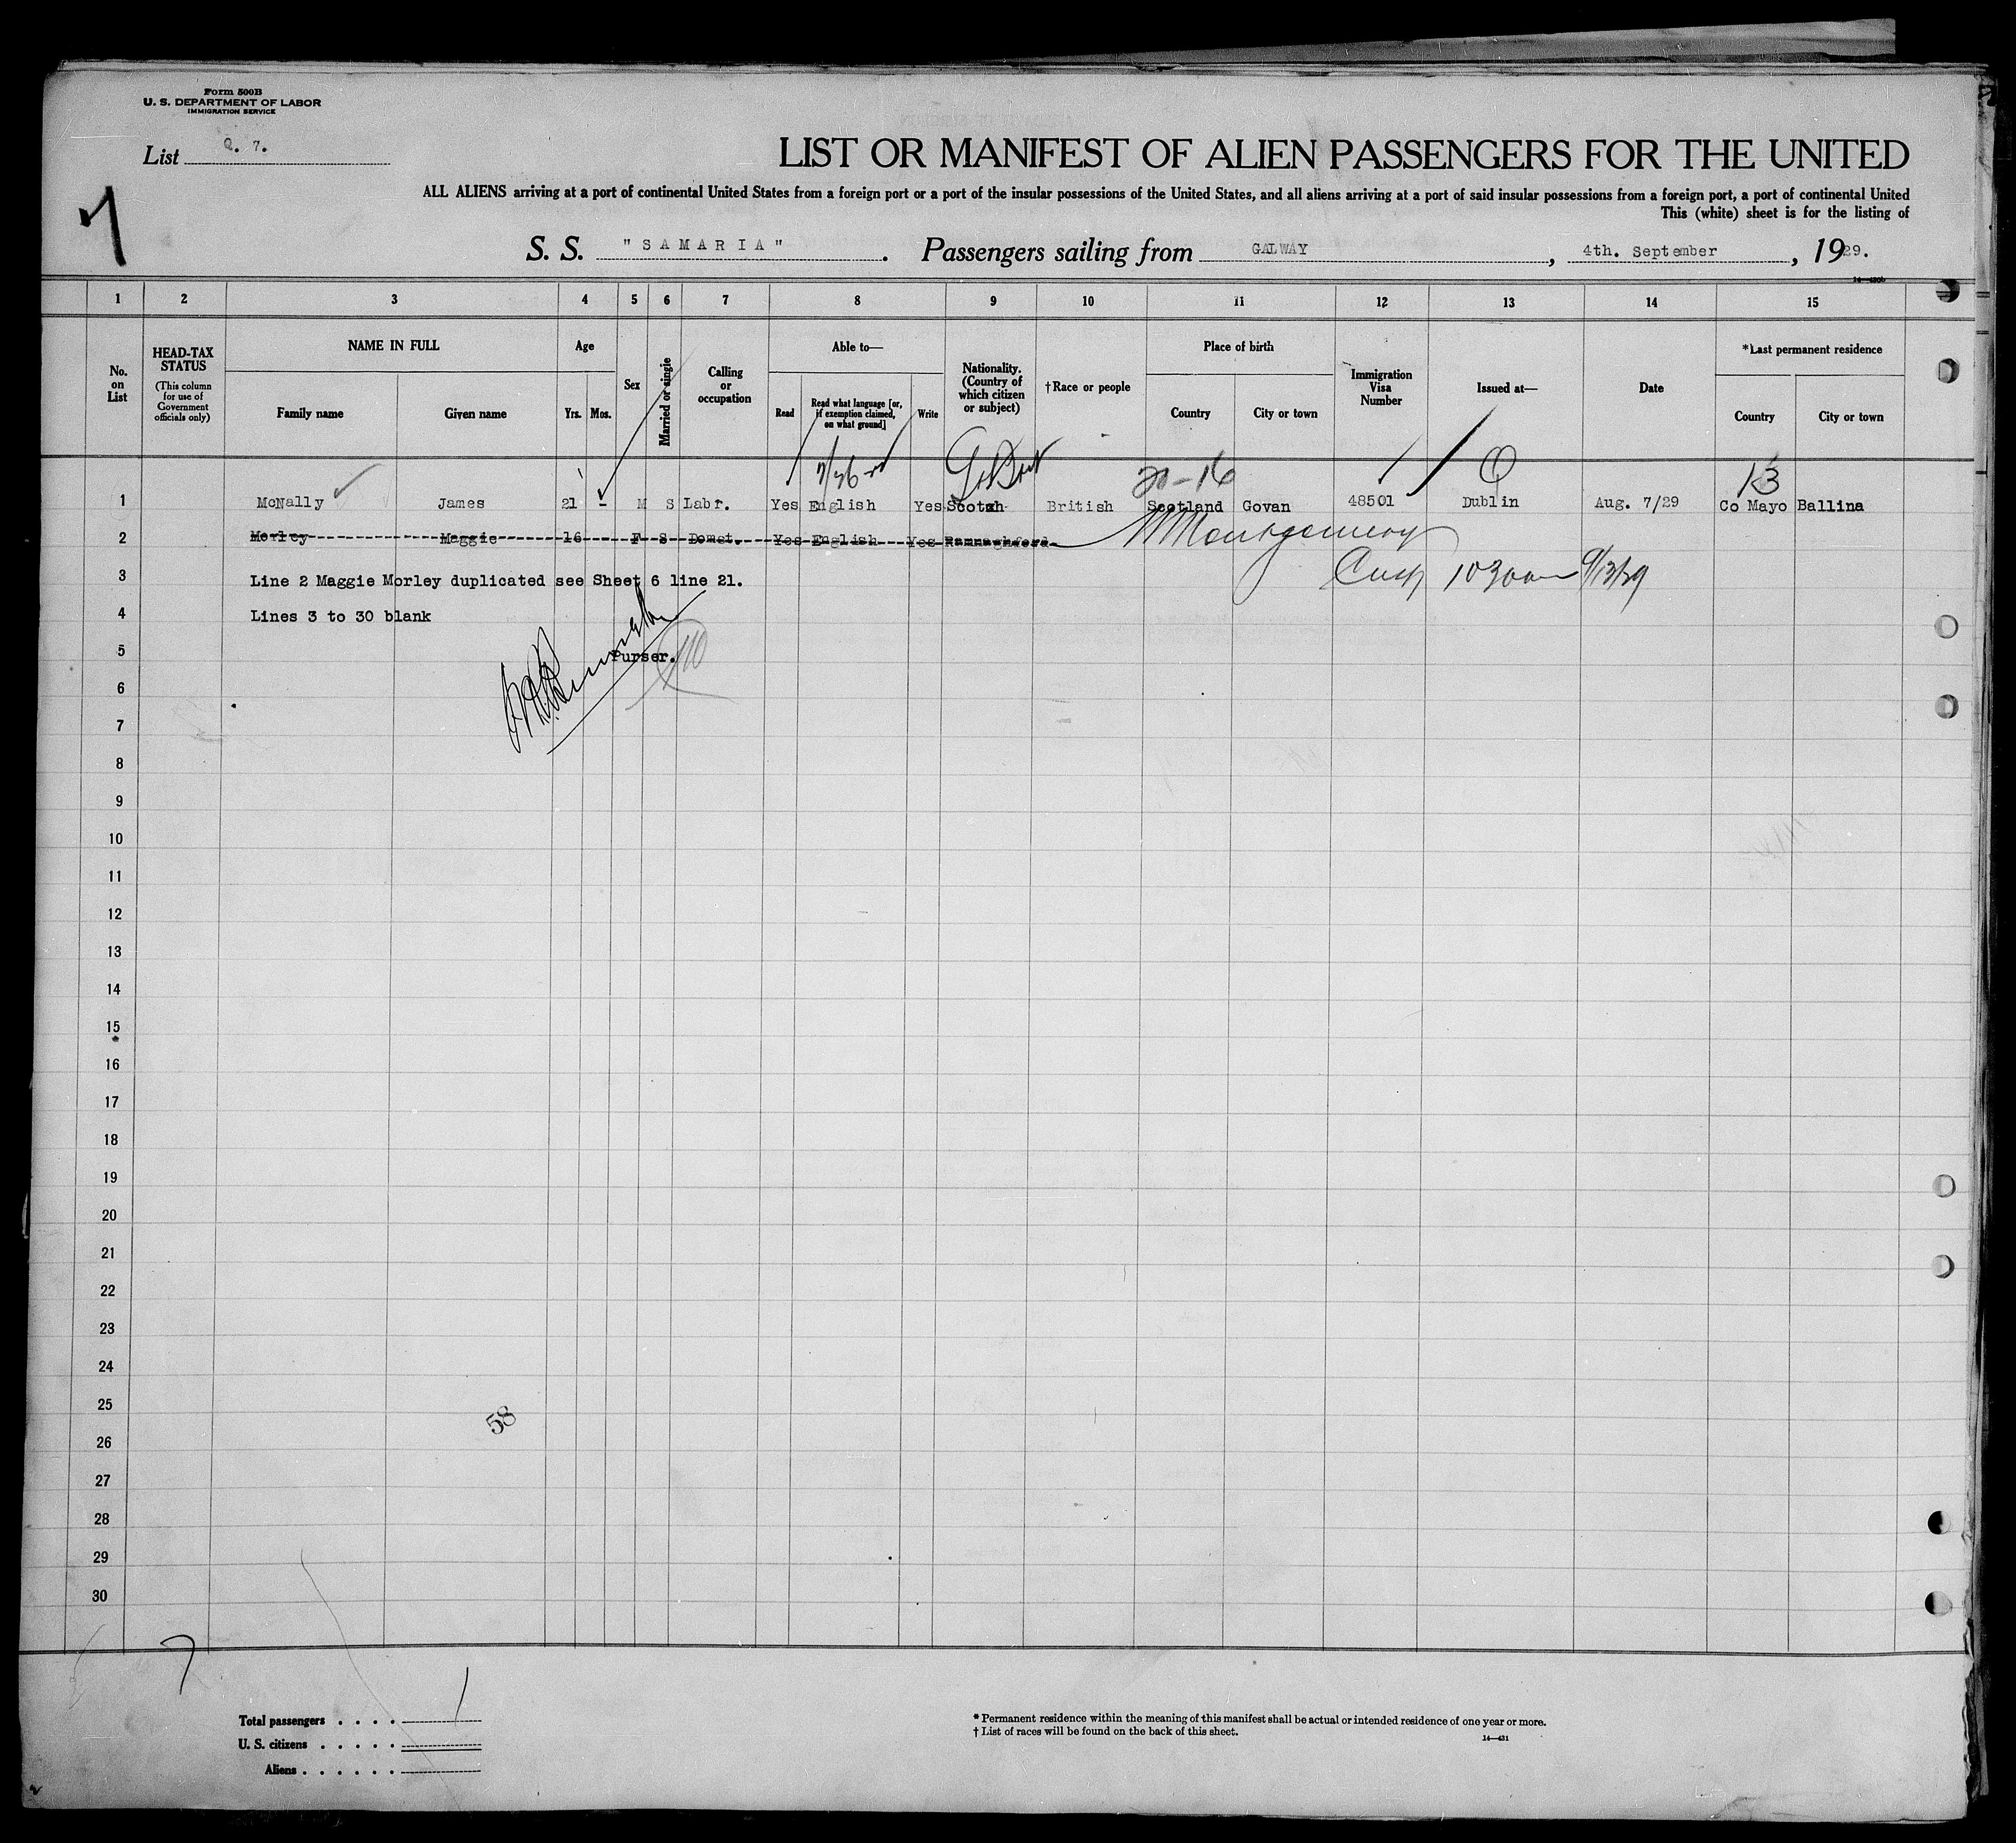 Form 500B
U. S. DEPARTMENT OF LABOR
IMMIGRATION SERVICE
List Q. 7.
7
LIST OR MANIFEST OF ALIEN PASSENGERS FOR THE UNITED
ALL ALIENS arriving at a port of continental United States from a foreign port or a port of the insular possessions of the United States, and all aliens arriving at a port of said insular possessions from a foreign port, a port of continental United
This (white) sheet is for the listing of
S. S. "SAMARIA". Passengers sailing from GALWAY, 4th. September, 1929.
14—430b
1 2 3 4 5 6 7 8 9 10 11 12 13 14 15
No. on List
HEAD-TAX STATUS
(This column for use of Government officials only)
NAME IN FULL
Family name Given name
Age
Yrs. Mos.
Sex
Married or single
Calling or occupation
Able to—
Read Read what language [or, if exemption claimed, on what ground] Write
Nationality. (Country of which citizen or subject)
†Race or people
Place of birth
Country City or town
Immigration Visa Number
Issued at—
Date
*Last permanent residence
Country City or town
Gt Brit 20-16 13
1 McNally James 21 - M S Labr. Yes English Yes Scotch British Scotland Govan 48501 Dublin Aug. 7/29 Co Mayo Ballina
2 Morley Maggie 16 - F S Domst. Yes English Yes Montgomery
3 Line 2 Maggie Morley duplicated see Sheet 6 line 21. 1030am 9/13/29
4 Lines 3 to 30 blank
5 Purser.
6
7
8
9
10
11
12
13
14
15
16
17
18
19
20
21
22
23
24
25
58
26
27
28
29
30
7
Total passengers . . . . 1
U. S. citizens . . . . .
Aliens . . . . . .
* Permanent residence within the meaning of this manifest shall be actual or intended residence of one year or more.
† List of races will be found on the back of this sheet.
14—431